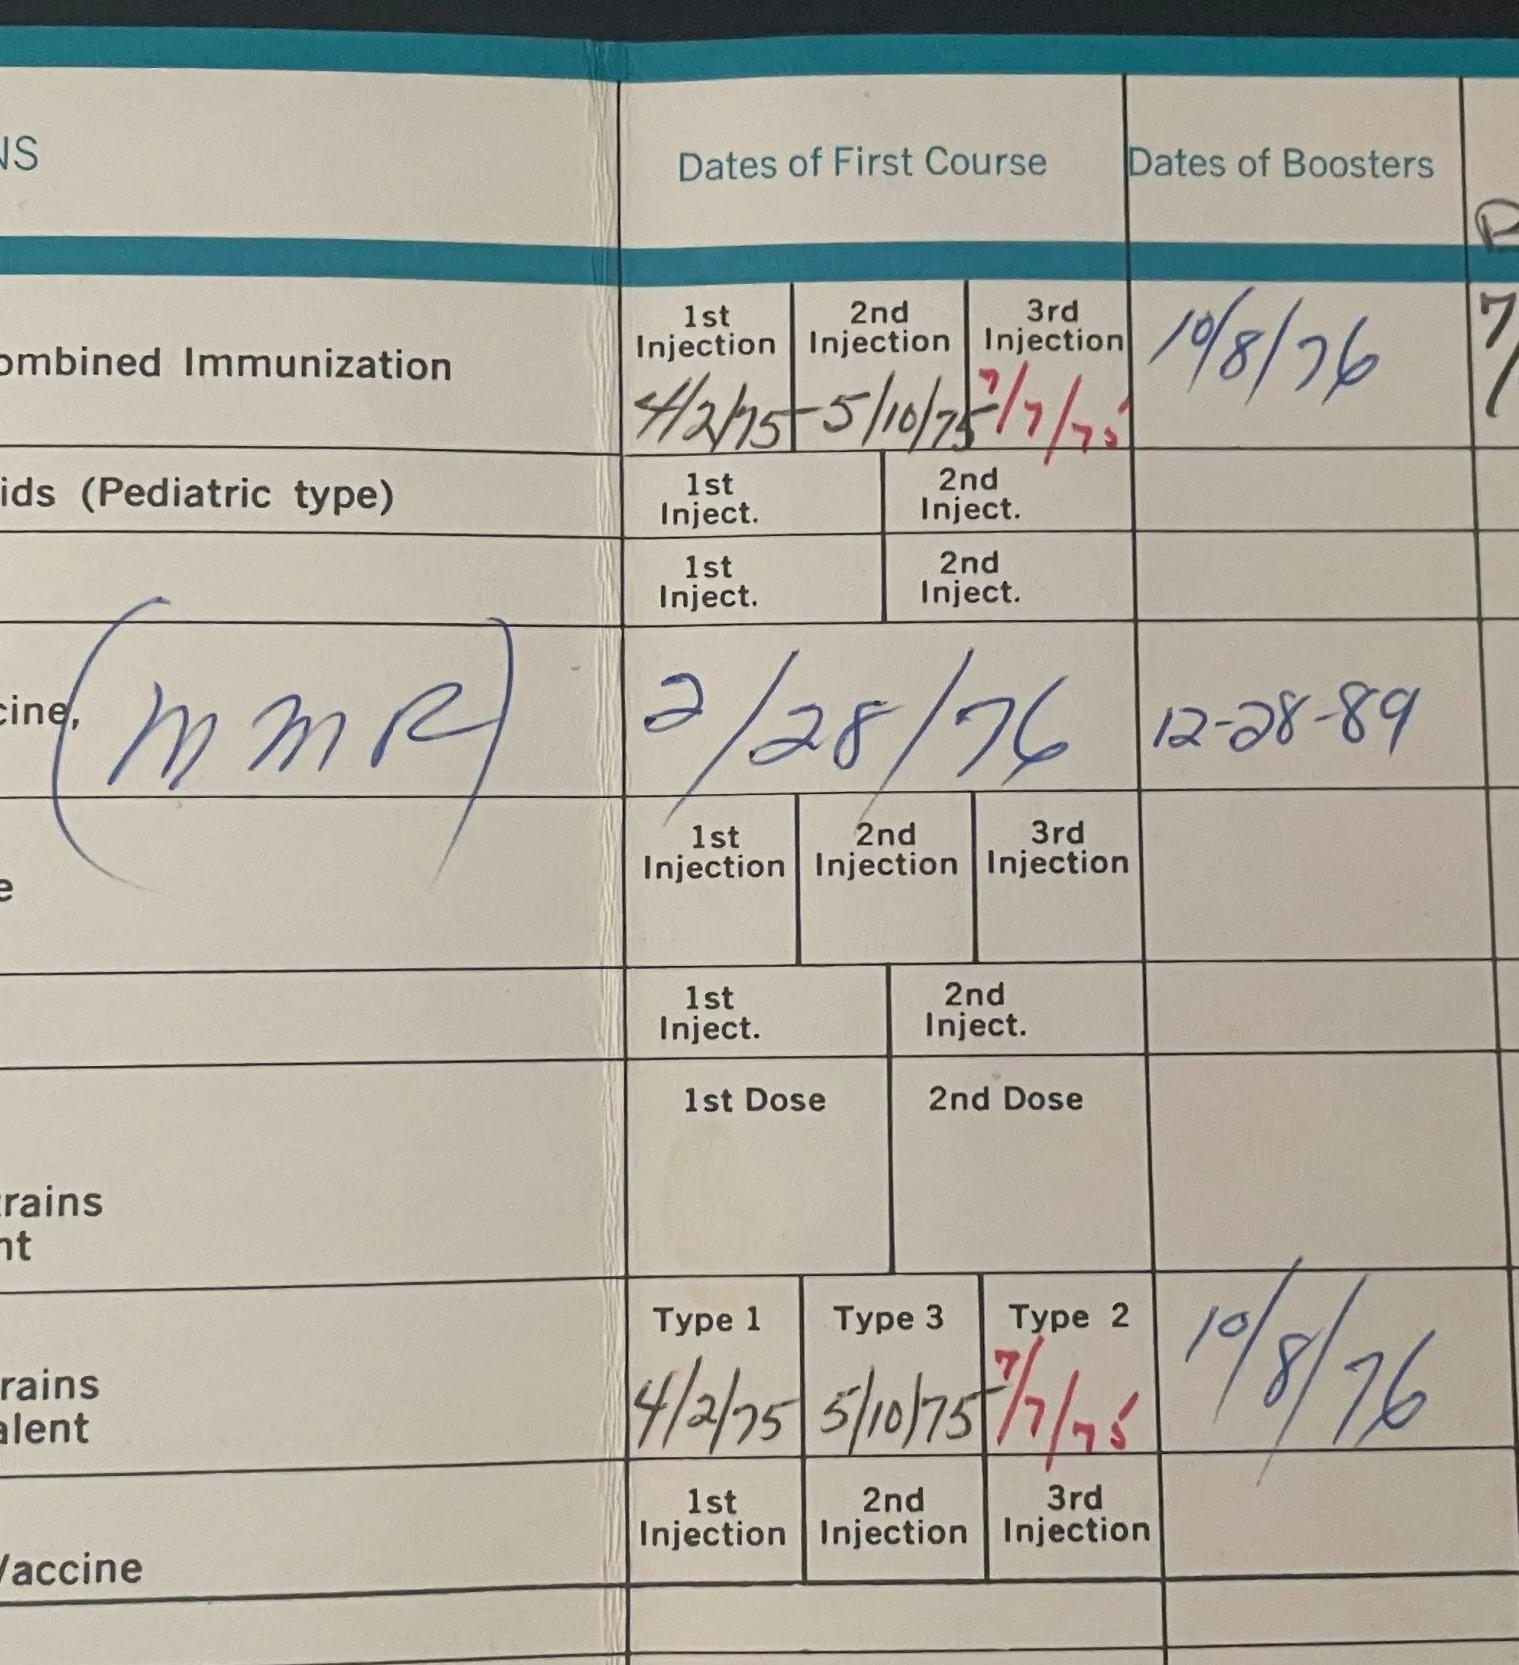 NS
Dates of First Course
Dates of Boosters
ombined Immunization
1st Injection
2nd Injection
3rd Injection
4/2/75
5/10/75
7/7/75
10/8/76
7/
ids (Pediatric type)
1st Inject.
2nd Inject.
1st Inject.
2nd Inject.
cine, (MMR)
2/28/76
12-28-89
e
1st Injection
2nd Injection
3rd Injection
1st Inject.
2nd Inject.
1st Dose
2nd Dose
rains
nt
Type 1
Type 3
Type 2
rains
alent
4/2/75
5/10/75
7/7/75
10/8/76
Vaccine
1st Injection
2nd Injection
3rd Injection